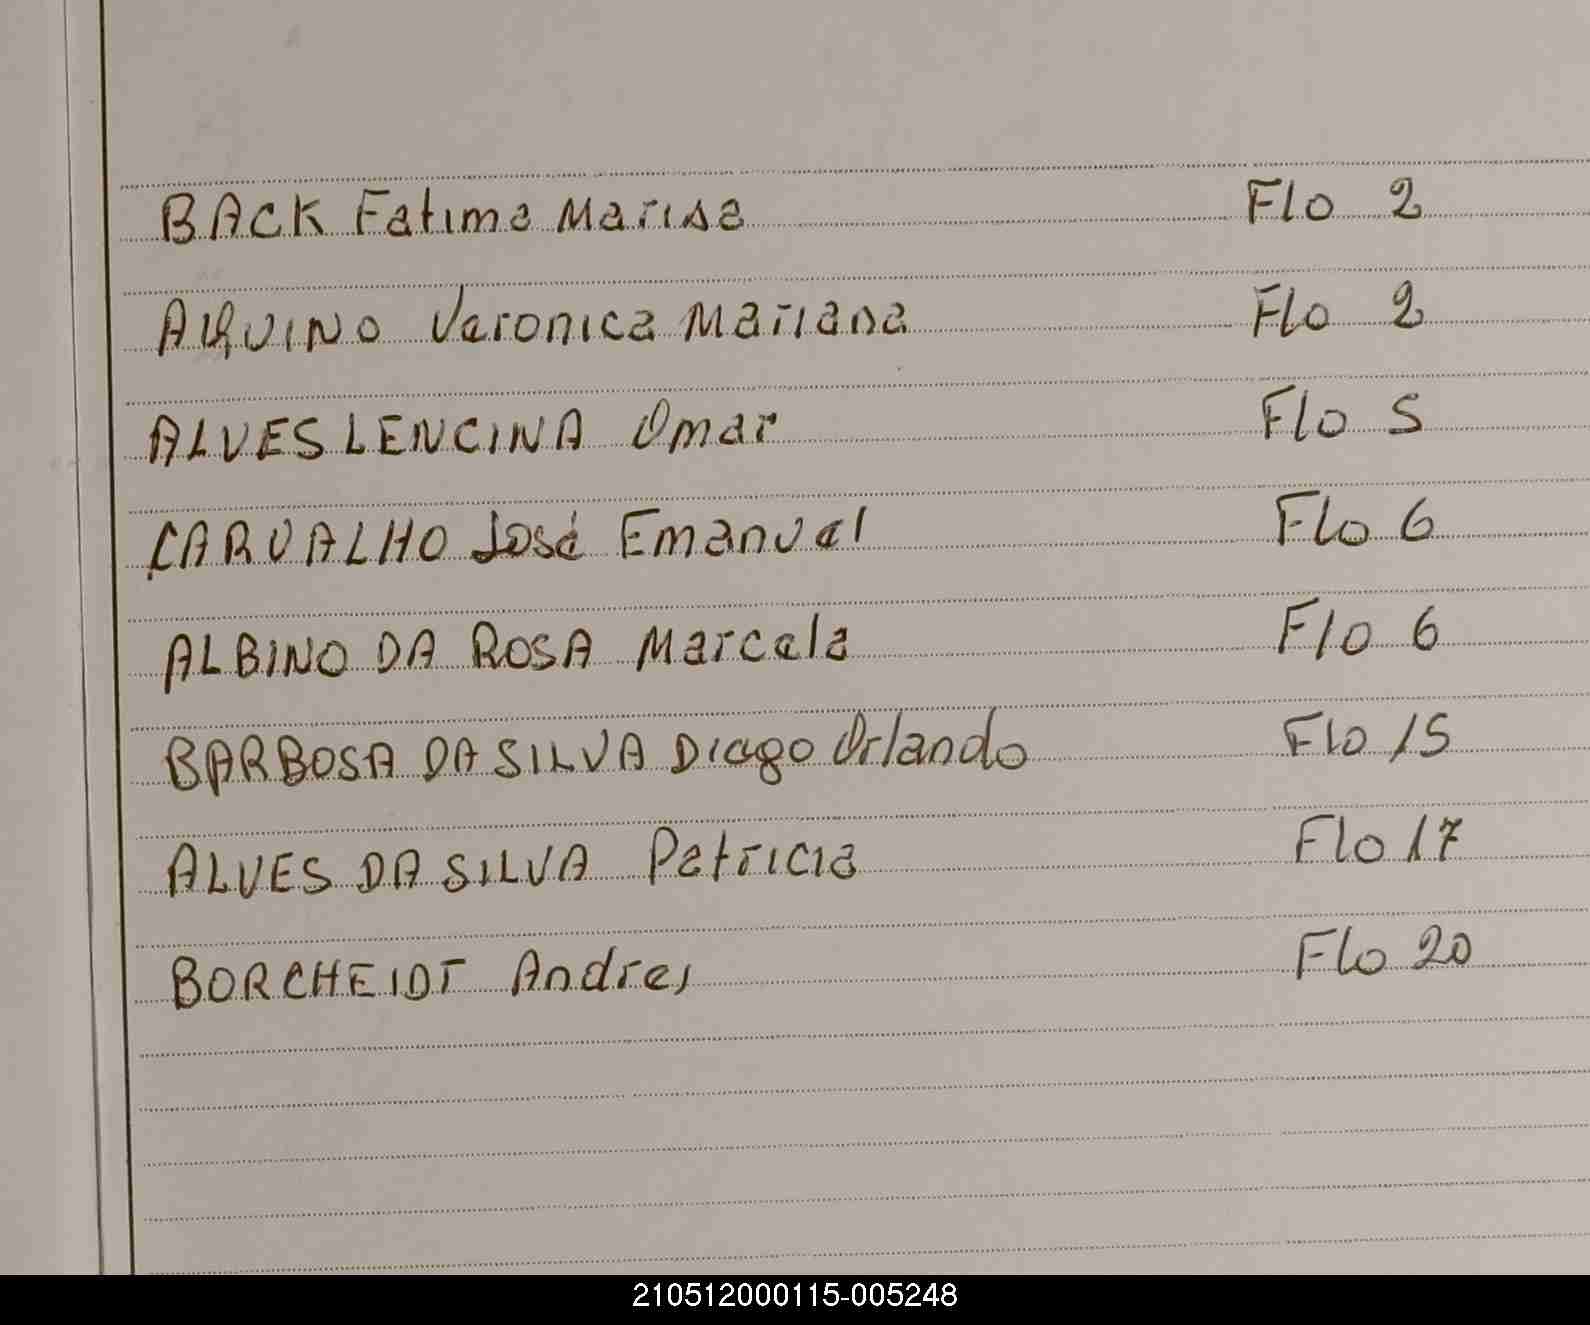 BACK Fatima Marisa Flo 2
AQUINO Veronica Mariana Flo 2
ALVES LENCINA Omar Flo 5
CARVALHO José Emanuel Flo 6
ALBINO DA ROSA Marcela Flo 6
BARBOSA DA SILVA Diego Orlando Flo 15
ALVES DA SILVA Patricia Flo 17
BORCHEIDT Andres Flo 20
210512000115-005248